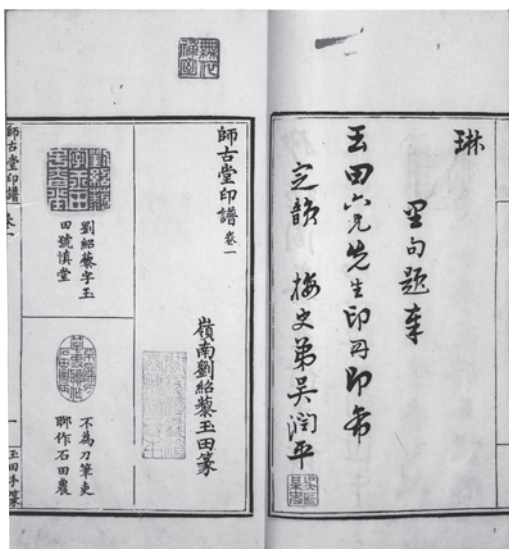 琳
里句題奉
玉田六兄先生印冊即希
韻 梅史弟吳潤平
師古堂印譜 卷一
嶺南劉紹藜玉田篆
劉紹藜字玉
田號慎堂
不為刀筆吏
聊作石田農
師古堂印譜 卷一
一 玉田手篆